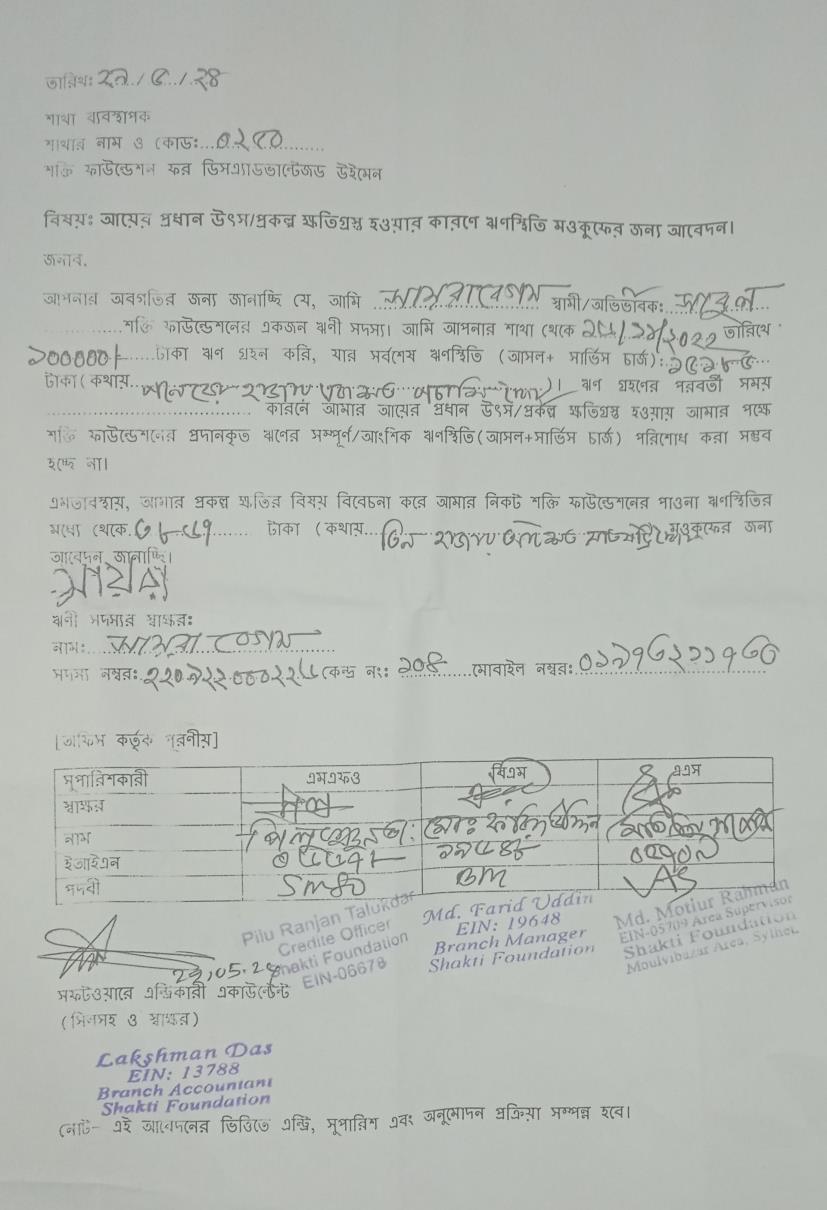 তারিখ: ২৯/৫/২৪
শাখা ব্যবস্থাপক
শাখার নাম ও কোড:...০২৫০.........
শক্তি ফাউন্ডেশন ফর ডিসএ্যাডভান্টেজড উইমেন
বিষয়ঃ আয়ের প্রধান উৎস/প্রকল্প ক্ষতিগ্রস্থ হওয়ার কারণে ঋণস্থিতি মওকুফের জন্য আবেদন।
জনাব,
আপনার অবগতির জন্য জানাচ্ছি যে, আমি ... বেগম স্বামী/অভিভাবক:
............শক্তি ফাউন্ডেশনের একজন ঋনী সদস্য। আমি আপনার শাখা থেকে তারিখে
১০০০০০/- টাকা ঋন গ্রহন করি, যার সর্বশেষ ঋণস্থিতি (আসল+ সার্ভিস চার্জ):
টাকা (কথায়... হাজার একশত পচাশি )। ঋণ গ্রহণের পরবর্তী সময়
.................................. কারনে আমার আয়ের প্রধান উৎস/প্রকল্প ক্ষতিগ্রস্থ হওয়ায় আমার পক্ষে
শক্তি ফাউন্ডেশনের প্রদানকৃত ঋনের সম্পূর্ণ/আংশিক ঋনস্থিতি(আসল+সার্ভিস চার্জ) পরিশোধ করা সম্ভব
হচ্ছে না।
এমতাবস্থায়, আমার প্রকল্প ক্ষতির বিষয় বিবেচনা করে আমার নিকট শক্তি ফাউন্ডেশনের পাওনা ঋণস্থিতির
মধ্যে থেকে.৩৮৬৭....... টাকা (কথায়...তিন হাজার আটশত সাতষট্টি ) মওকুফের জন্য
আবেদন জানাচ্ছি।
সায়রা
ঋনী সদস্যর স্বাক্ষরঃ
নাম: বেগম
সদস্য নম্বর: কেন্দ্র নং: ১০৪ মোবাইল নম্বর: ০১৯৭৬২১১৭৬৩
[অফিস কর্তৃক পূরনীয়]
সুপারিশকারী এমএফও বিএম এএস
স্বাক্ষর
নাম
ইআইএন ১৯৬৪৮ ০৫৭০৯
পদবী BM AS
Pilu Ranjan Talukdar
Credite Officer
Shakti Foundation
EIN-06678
Md. Farid Uddin
EIN: 19648
Branch Manager
Shakti Foundation
Md. Motiur Rahman
EIN-05709 Area Supervisor
Shakti Foundation
Moulvibazar Area, Sylhet.
29.05.24
সফটওয়ারে এন্ট্রিকারী একাউন্টেন্ট
(সিলসহ ও স্বাক্ষর)
Lakshman Das
EIN: 13788
Branch Accountant
Shakti Foundation
নোট- এই আবেদনের ভিত্তিতে এন্ট্রি, সুপারিশ এবং অনুমোদন প্রক্রিয়া সম্পন্ন হবে।